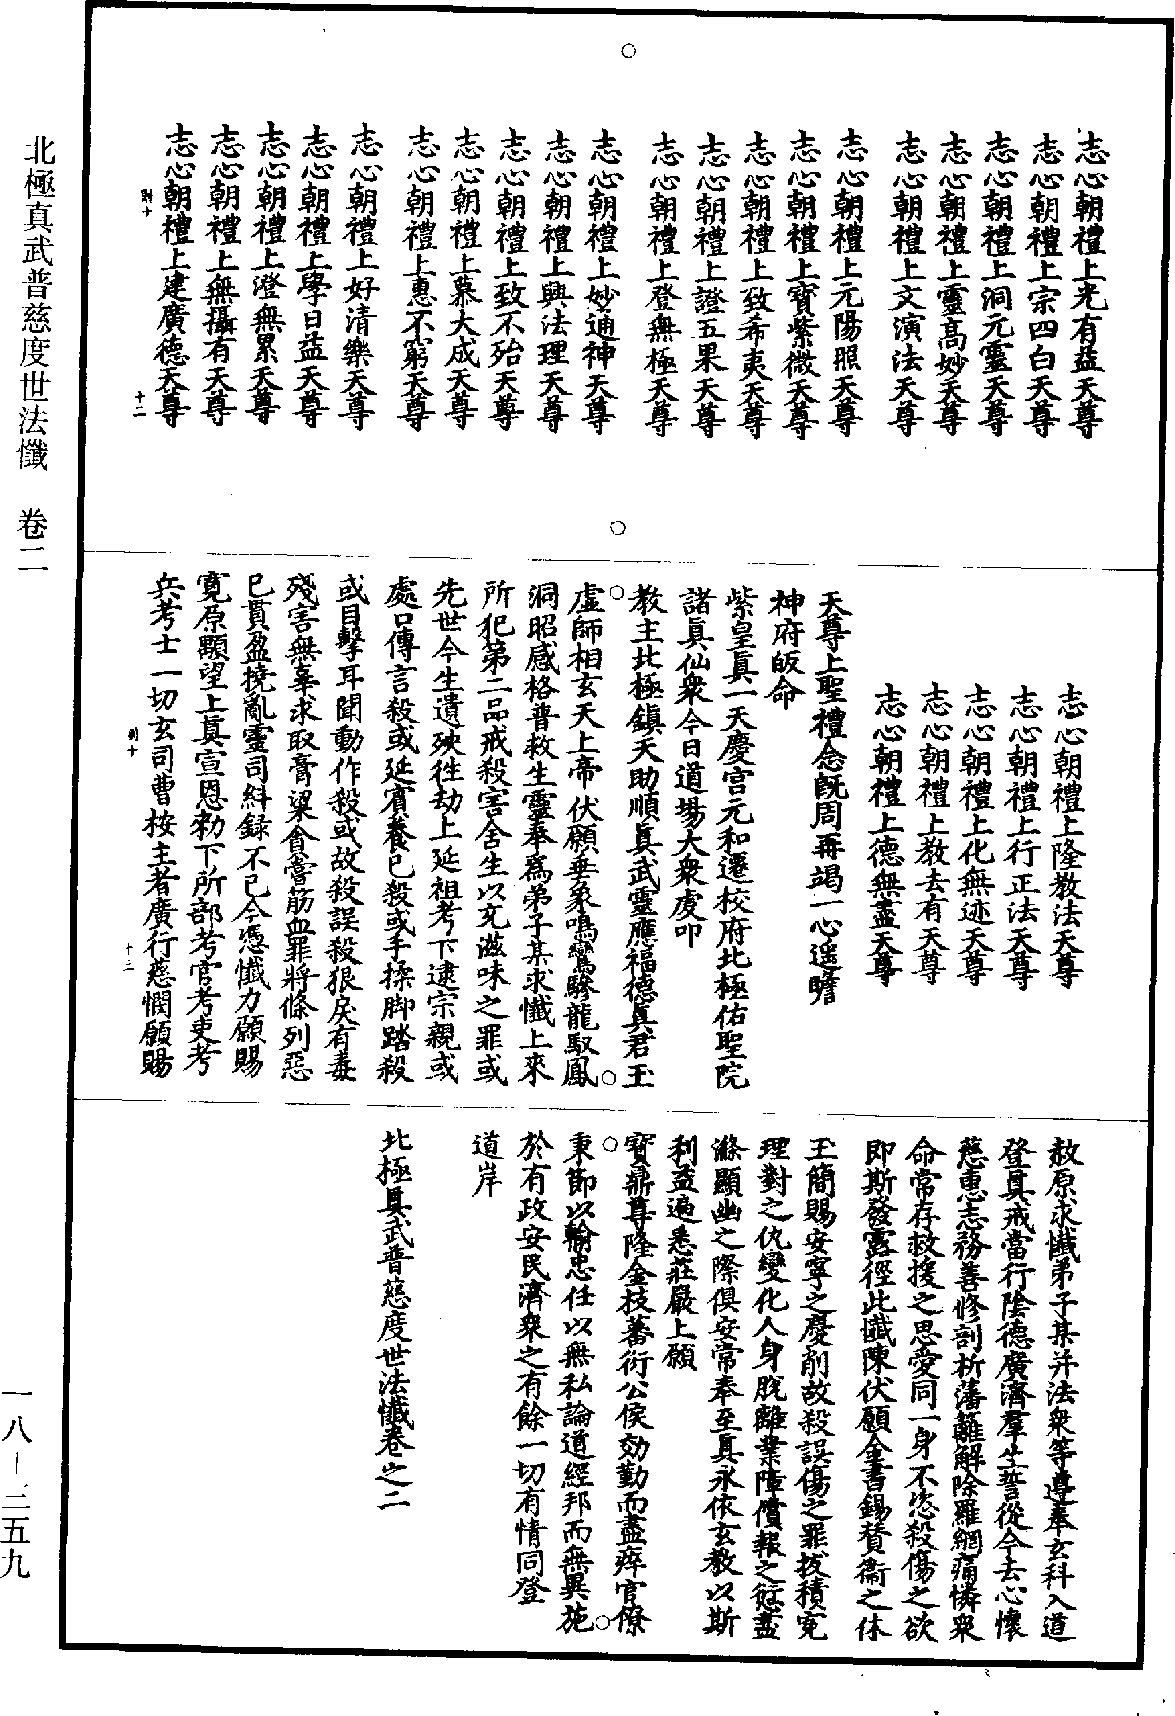 志心朝禮上光有益天尊
志心朝禮上宗四白天尊
志心朝禮上洞元靈天尊
志心朝禮上靈高妙天尊
志心朝禮上文演法天尊
志心朝禮上元陽照天尊
志心朝禮上寶紫微天尊
志心朝禮上致希夷天尊
志心朝禮上證五果天尊
志心朝禮上登無極天尊
志心朝禮上妙通神天尊
志心朝禮上興法理天尊
志心朝禮上致不殆天尊
志心朝禮上慕大成天尊
志心朝禮上惠不窮天尊
志心朝禮上好清樂天尊
志心朝禮上學日益天尊
志心朝禮上澄無累天尊
志心朝禮上無攝有天尊
志心朝禮上建廣德天尊
十二
志心朝禮上隆教法天尊
志心朝禮上行正法天尊
志心朝禮上化無迹天尊
志心朝禮上教去有天尊
志心朝禮上德無盡天尊
天尊上聖禮念既周再竭一心遥瞻
神府皈命
紫皇真一天慶宫元和遷校府北極佑聖院
諸真仙衆今日道場大衆虔叩
教主北極鎮天助順真武靈應福德真君玉
虛師相玄天上帝伏願垂象鳴鸞驂龍馭鳳
洞昭感格普救生靈奉爲弟子某求懺上來
所犯第二品戒殺害含生以充滋味之罪或
先世今生遺殃徃劫上延祖考下逮宗親或
處口傳言殺或延賓養已殺或手操脚踏殺
或目擊耳聞動作殺或故殺誤殺狠戾有毒
殘害無辜求取膏粱貪嘗筋血罪將條列惡
已貫盈撓亂靈司紏録不已今憑懺力願賜
寬原顯望上真宣恩勑下所部考官考吏考
兵考士一切玄司曹按主者廣行慈憫願賜
十三
赦原求懺弟子某并法衆等遵奉玄科入道
登真戒當行陰德廣濟羣生誓從今去心懷
慈惠志務善修剖析藩籬解除羅網痛憐衆
命常存救援之思愛同一身不恣殺傷之欲
即斯發露徑此懺陳伏願金書錫賛衞之休
玉簡賜安寧之慶削故殺誤傷之罪拔積寃
理對之仇變化人身脫離業障償報之愆盡
滌顯幽之際俱安常奉至真永依玄教以斯
利益遍悉莊嚴上願
寶鼎尊隆金枝蕃衍公侯効勤而盡瘁官僚
秉節以輸忠任以無私論道經邦而無異施
於有政安民濟衆之有餘一切有情同登
道岸
北極真武普慈度世法懺卷之二
北極真武普慈度世法懺　卷二
一八－三五九